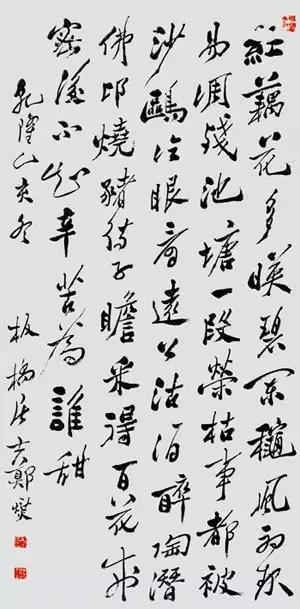 紅藕花多暎碧闌龝風初起
易凋殘池塘一段榮枯事都被
沙鷗冷眼看遠公沽酒醉陶潛
佛印燒豬待子瞻采得百花成
蜜後不知辛苦為誰甜
乾隆乙亥冬
板橋居士鄭燮